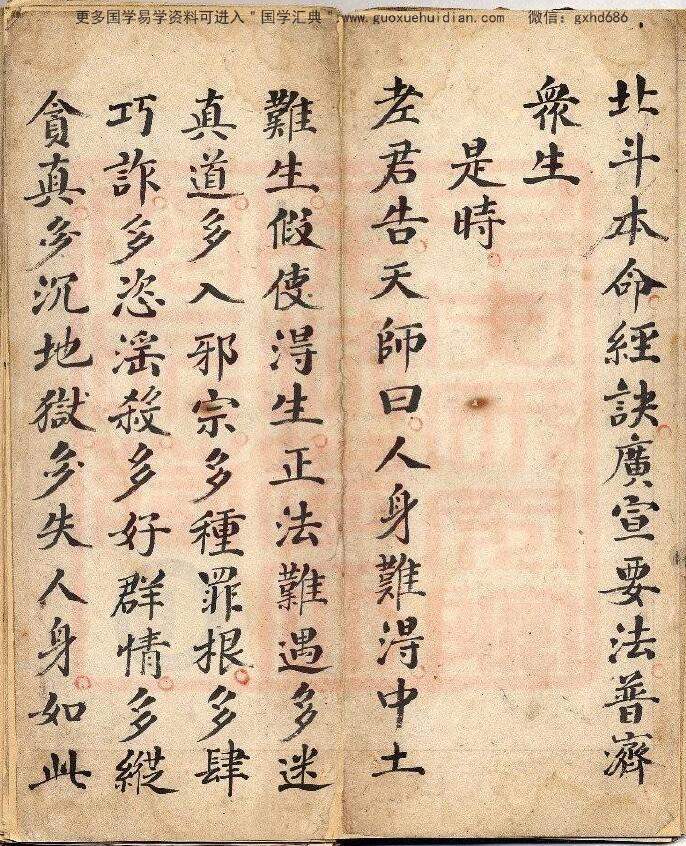 更多国学易学资料可进入＂国学汇典＂:www.guoxuehuidian.com 微信：gxhd686
北斗本命經訣廣宣要法普濟
衆生
是時
老君告天師曰人身難淂中土
難生假使淂生正法難遇多迷
真道多入邪宗多種罪根多肆
巧詐多恣滛殺多好群情多縱
貪真多沉地獄多失人身如此